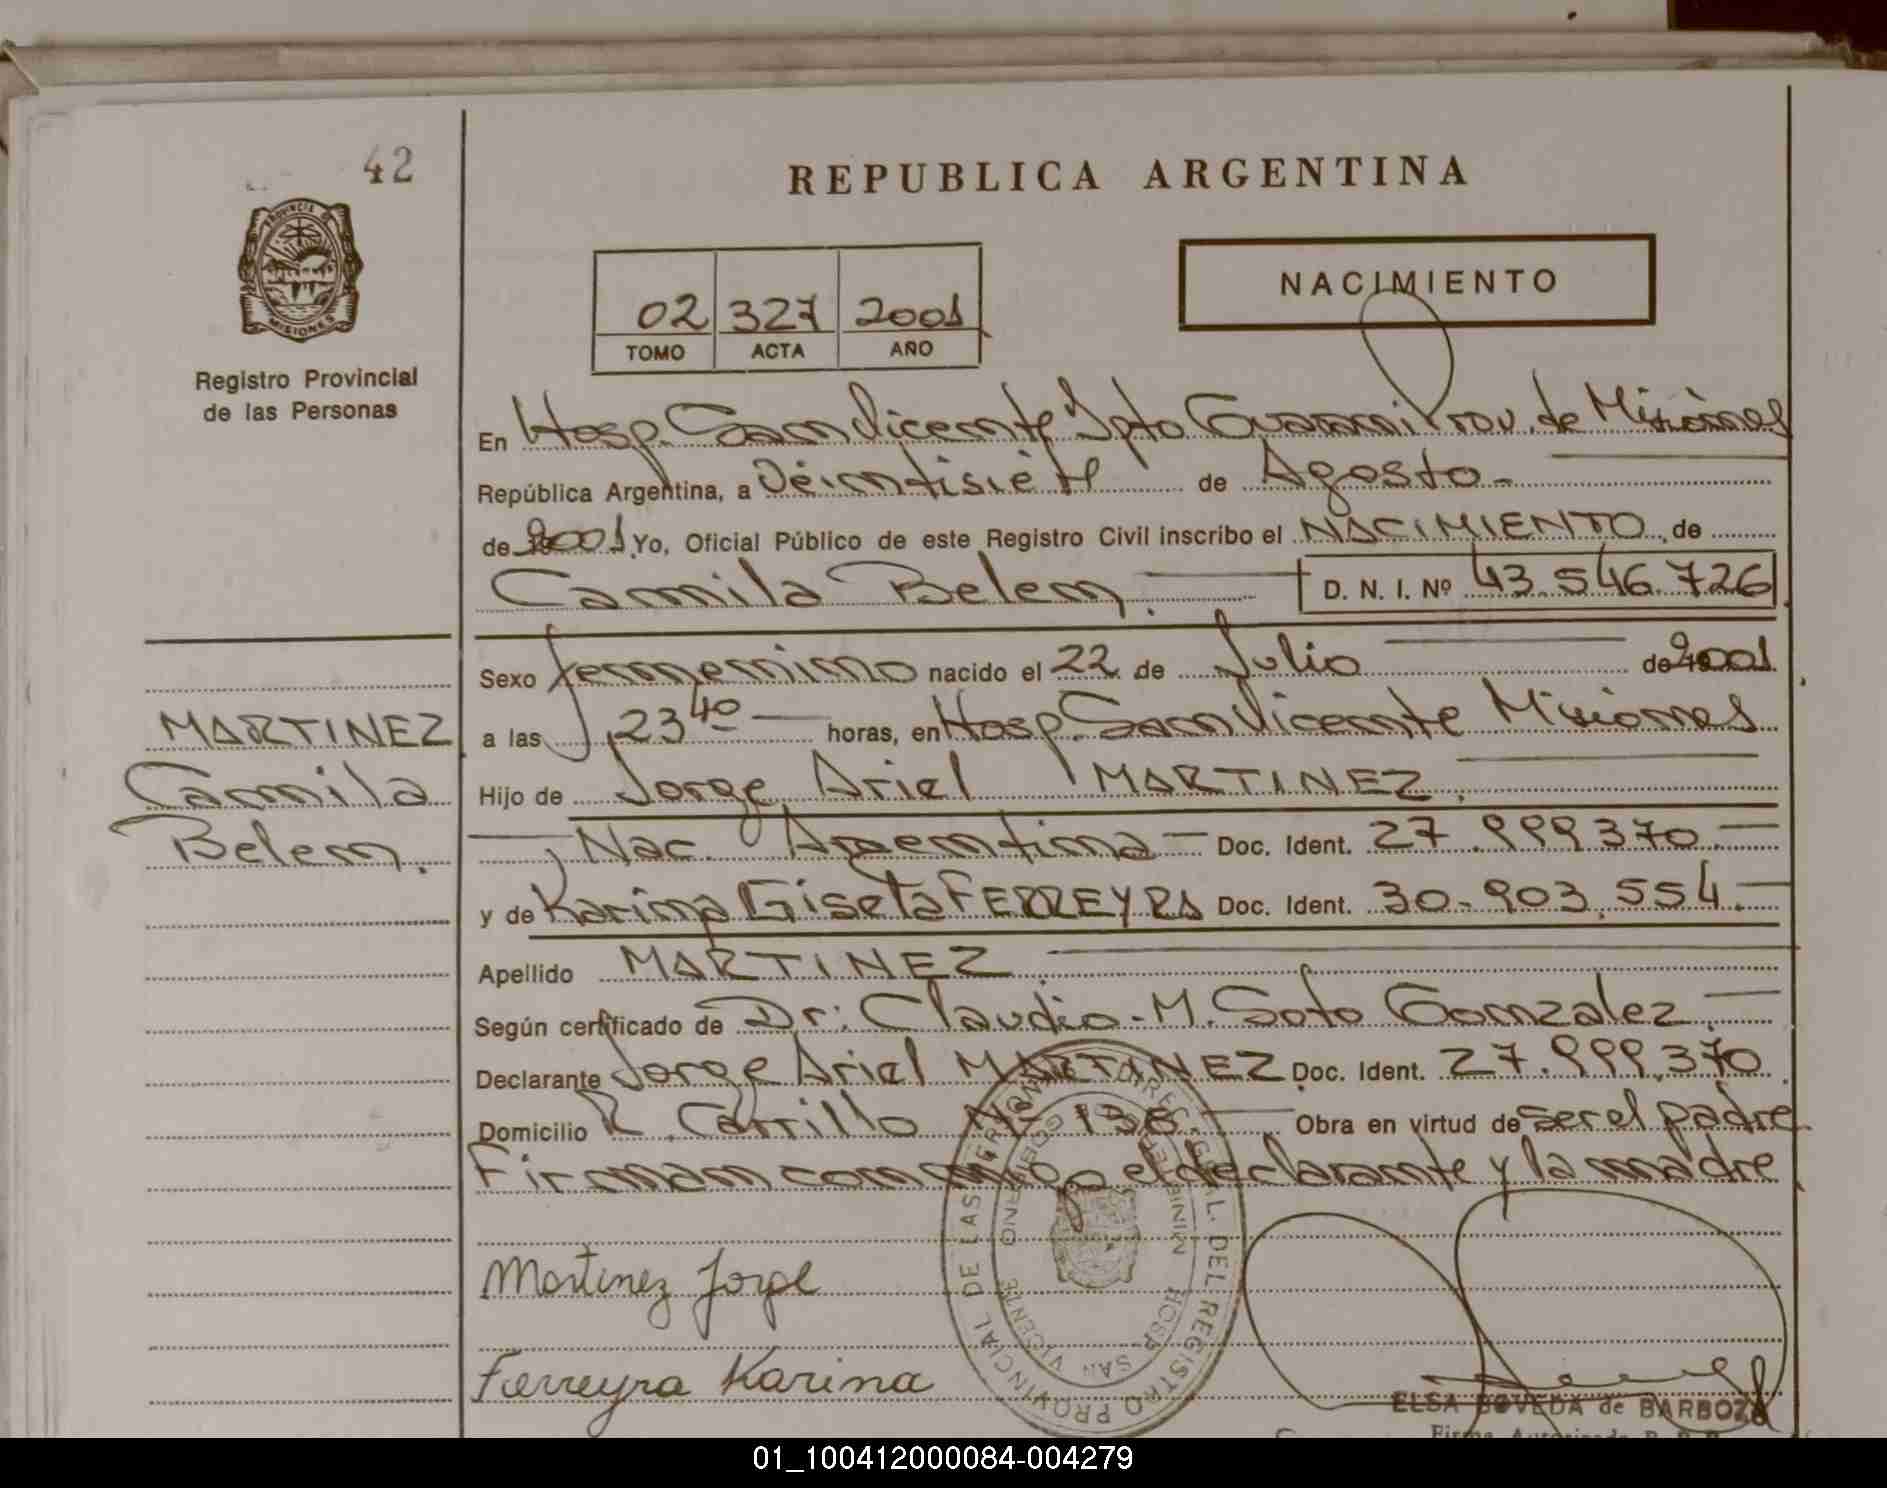 42
REPUBLICA ARGENTINA
PROVINCIA DE
MISIONES
Registro Provincial
de las Personas
02 327 2001
TOMO ACTA AÑO
NACIMIENTO
En Hosp. San Vicente Dpto Guarani Prov. de Misiones
República Argentina, a Veintisiete de Agosto.-
de 2001 Yo, Oficial Público de este Registro Civil inscribo el NACIMIENTO de
Camila Belem. D. N. I. Nº 43.546.726
Sexo femenino nacido el 22 de Julio de 2001.
a las 23 40 horas, en Hosp. San Vicente Misiones
MARTINEZ
Camila
Belem.
Hijo de Jorge Ariel MARTINEZ.
Nac. Argentina Doc. Ident. 27.999.370.
y de Karina Gisela FERREYRA Doc. Ident. 30.903.554.
Apellido MARTINEZ.
Según certificado de Dr: Claudio. M. Soto Gonzalez.
Declarante Jorge Ariel MARTINEZ Doc. Ident. 27.999.370.
Domicilio R. Carrillo Nº 138. Obra en virtud de ser el padre
Firman conmigo el declarante y la madre
Martinez Jorge
Ferreyra Karina
DIREC. GRAL. DEL REGISTRO PROVINCIAL DE LAS PERSONAS
HOSP. SAN VICENTE
ELSA BOVEDA de BARBOZA
Firma Autorizada
01_100412000084-004279